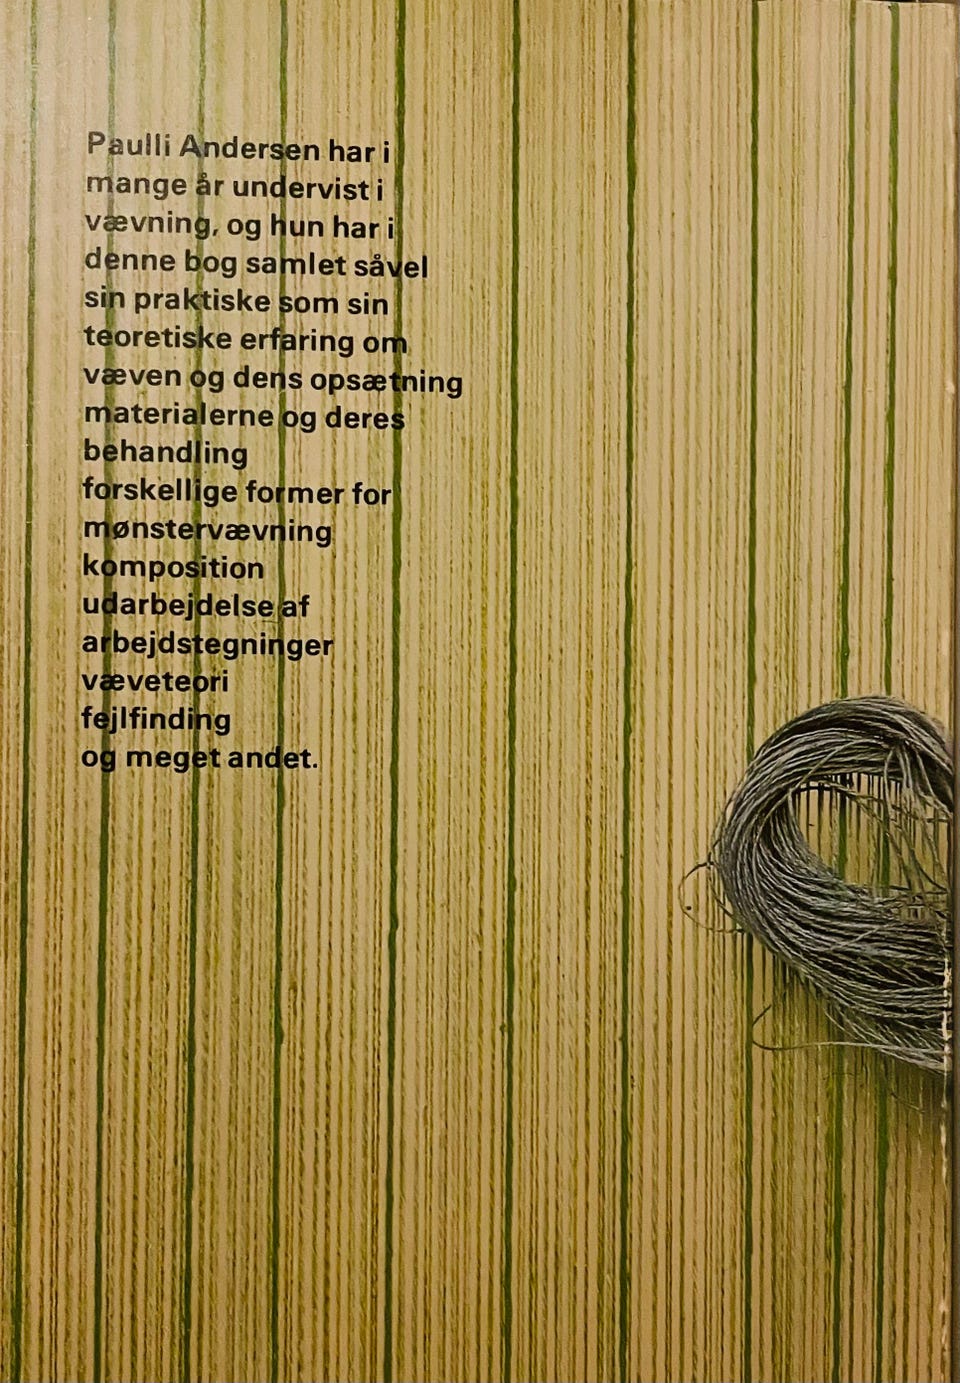 Paulli Andersen har i
mange år undervist i
vævning, og hun har i
denne bog samlet såvel
sin praktiske som sin
teoretiske erfaring om
væven og dens opsætning
materialerne og deres
behandling
forskellige former for
mønstervævning
komposition
udarbejdelse af
arbejdstegninger
væveteori
fejlfinding
og meget andet.